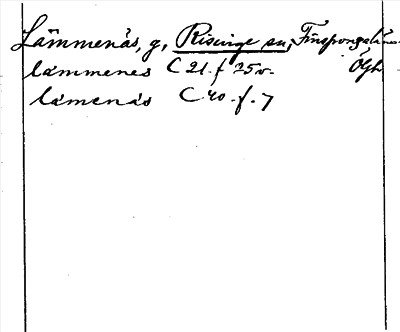 Lämmenäs, g, Risinge sn, Finspongalän
lammenes C 21. f 25 v. Ögh
lamenäs C. 40. f. 7